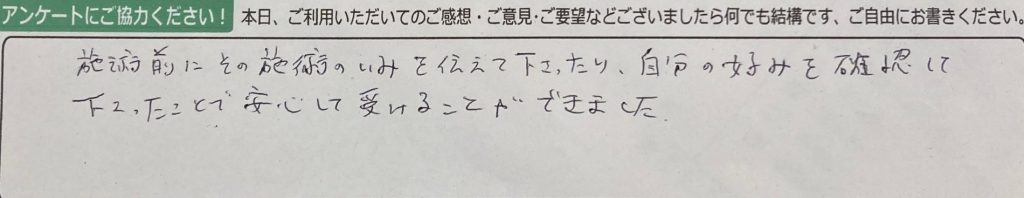 アンケートにご協力ください！ 本日、ご利用いただいてのご感想・ご意見・ご要望などございましたら何でも結構です、ご自由にお書きください。
施術前にその施術のいみを伝えて下さったり、自分の好みを確認して
下さったことで安心して受けることができました